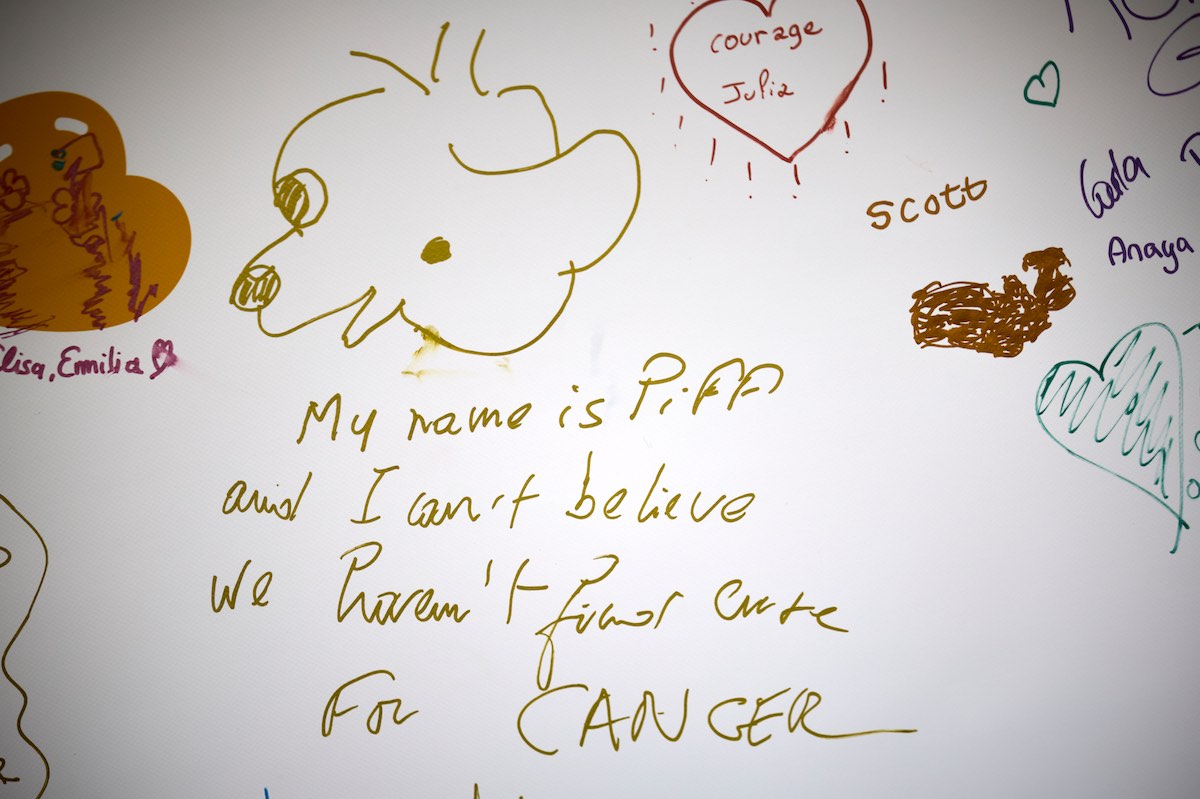 courage
Julia
Scott
Anaya
Elisa, Emilia
My name is Piff
and I can't believe
we haven't find cure
For CANCER